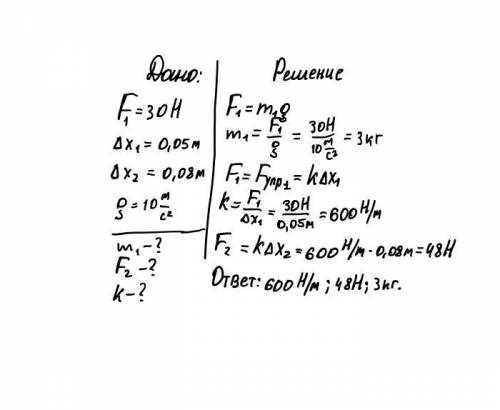 Дано:
F₁=30Н
Δx₁=0,05м
Δx₂=0,08м
g=10 м/с²
m₁-?
F₂-?
k-?
Решение
F₁=m₁g
m₁=F₁/g=30Н/10 м/с²=3кг
F₁=Fупр₁=kΔx₁
k=F₁/Δx₁=30Н/0,05м=600 Н/м
F₂=kΔx₂=600 Н/м·0,08м=48Н
Ответ: 600 Н/м; 48Н; 3кг.